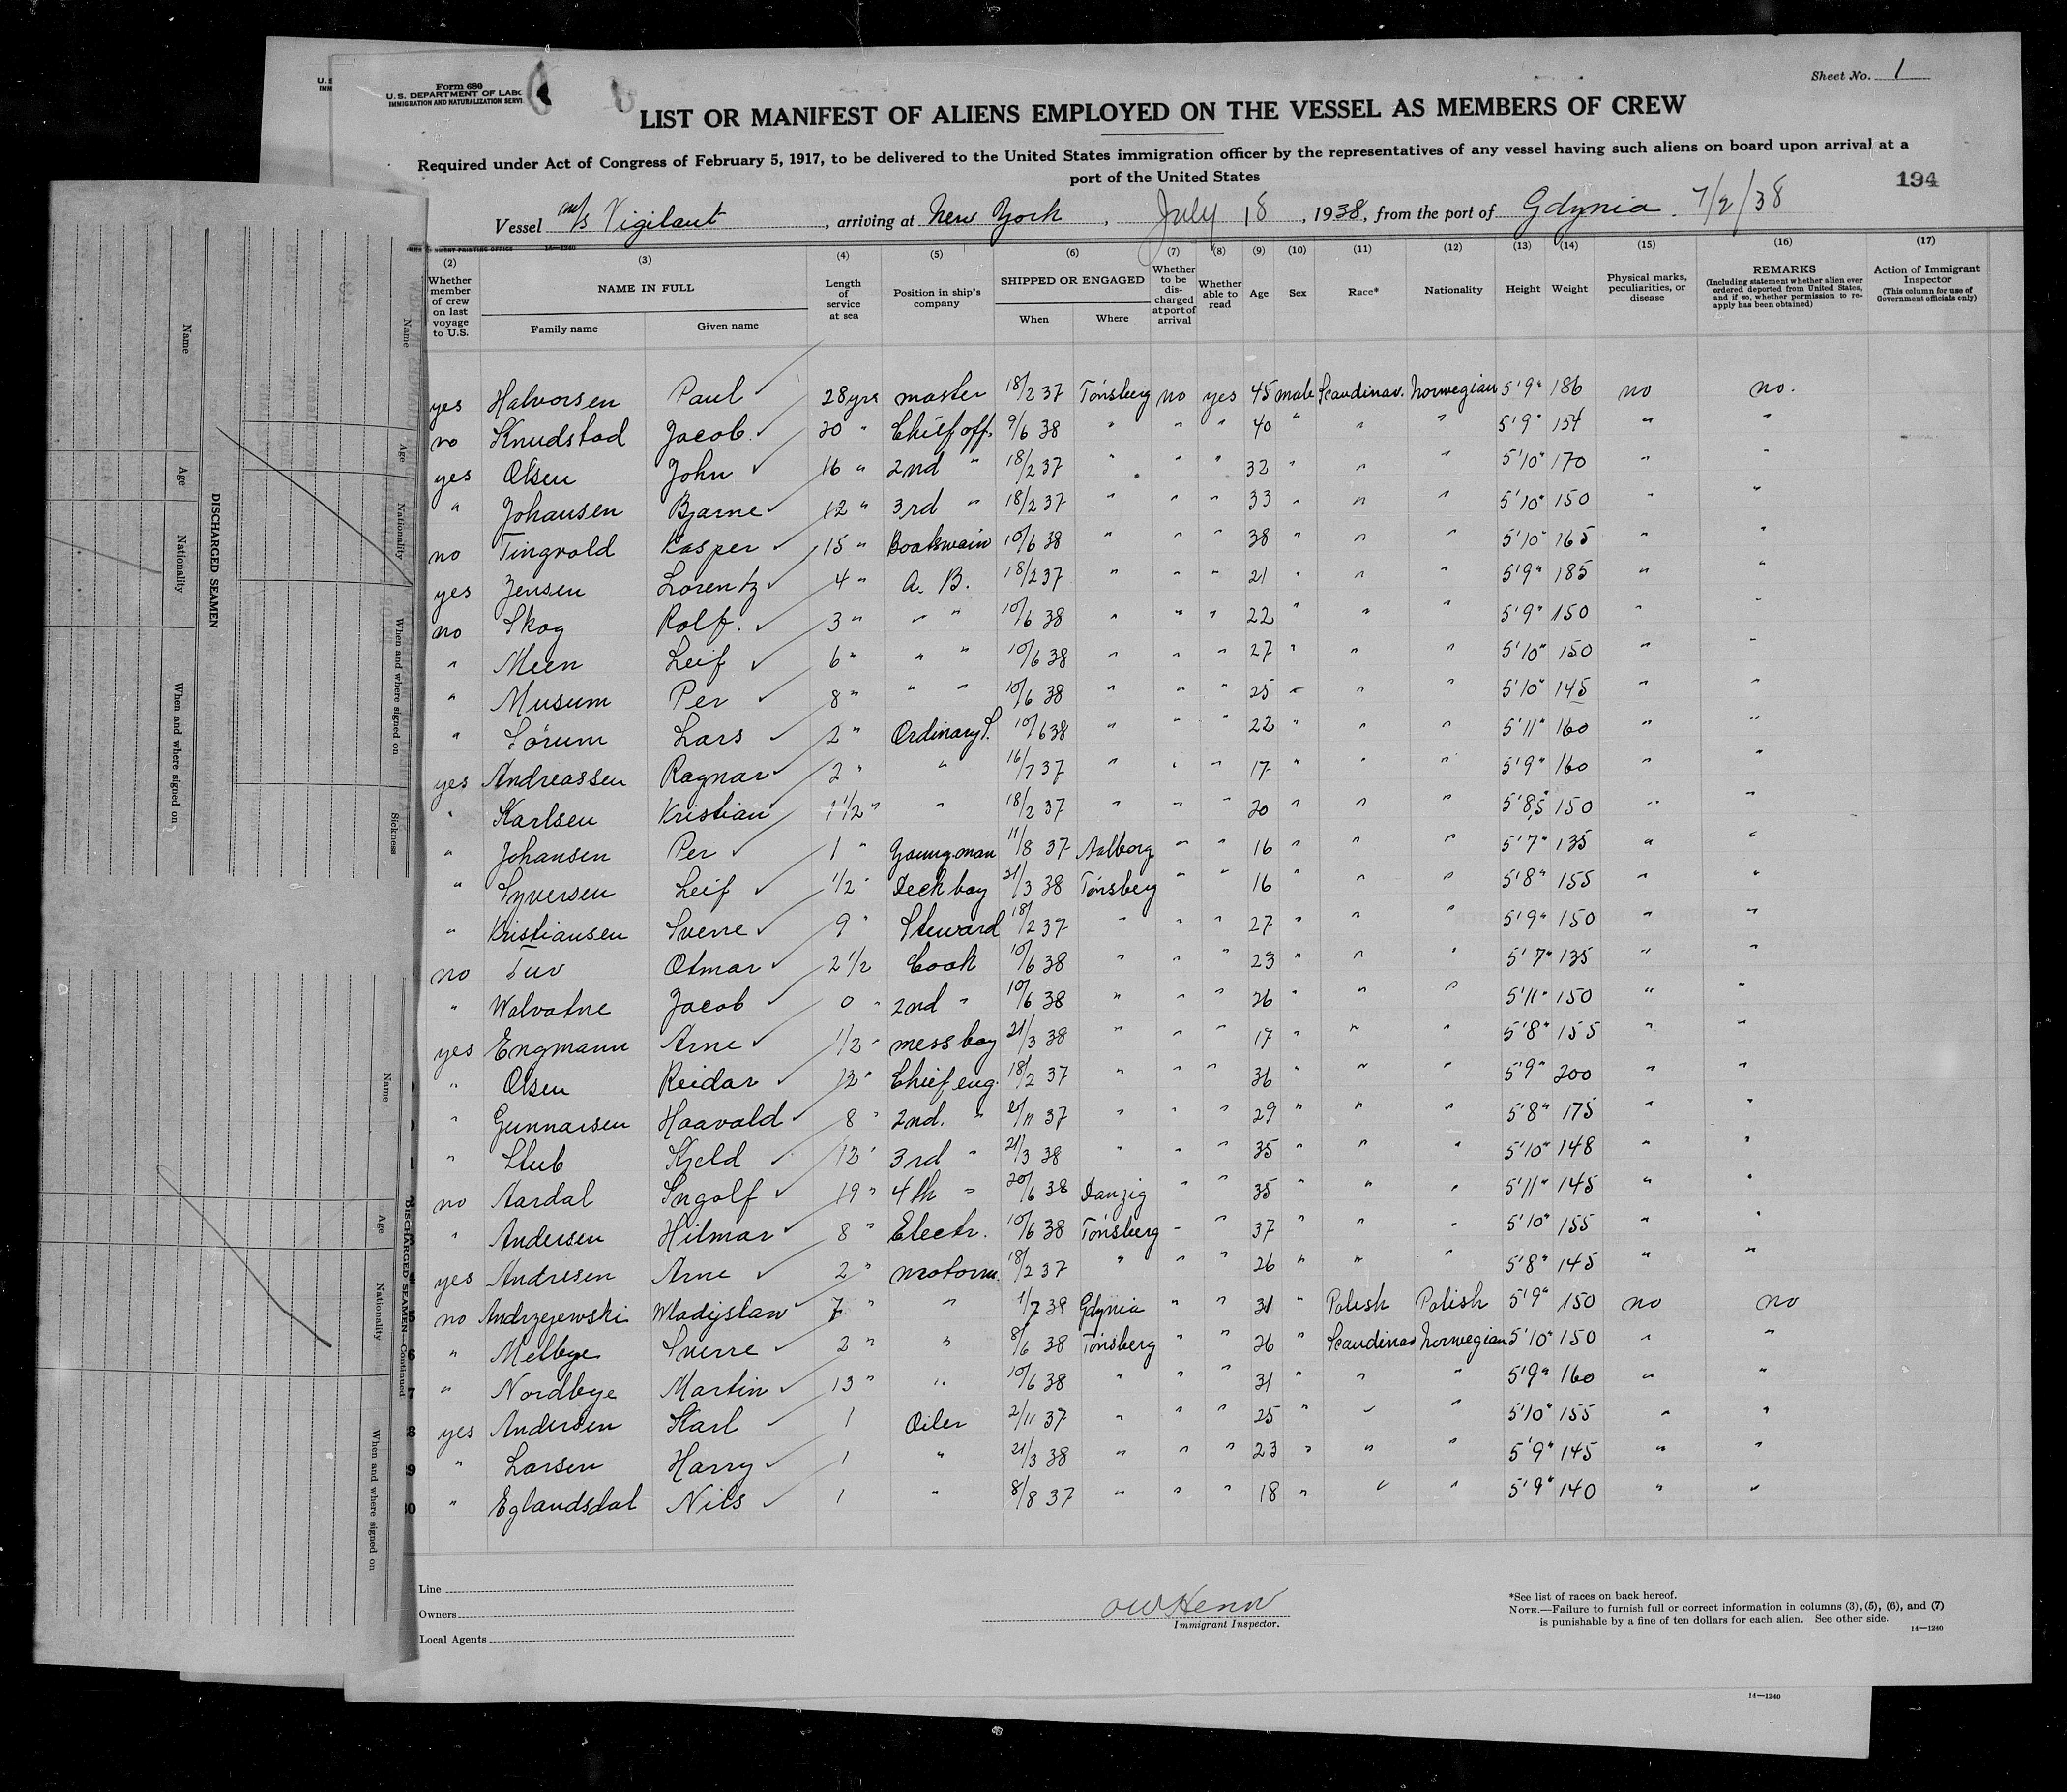 Form 680
U. S. DEPARTMENT OF LABO
IMMIGRATION AND NATURALIZATION SERVI
Sheet No. 1
LIST OR MANIFEST OF ALIENS EMPLOYED ON THE VESSEL AS MEMBERS OF CREW
Required under Act of Congress of February 5, 1917, to be delivered to the United States immigration officer by the representatives of any vessel having such aliens on board upon arrival at a
port of the United States
194
Vessel m/s Vigilant, arriving at New York, July 18, 1938, from the port of Gdynia. 7/2/38
(2) (3) (4) (5) (6) (7) (8) (9) (10) (11) (12) (13) (14) (15) (16) (17)
Whether member of crew on last voyage to U.S. NAME IN FULL Family name Given name Length of service at sea Position in ship's company SHIPPED OR ENGAGED When Where Whether to be discharged at port of arrival Whether able to read Age Sex Race* Nationality Height Weight Physical marks, peculiarities, or disease REMARKS (Including statement whether alien ever ordered deported from United States, and if so, whether permission to reapply has been obtained) Action of Immigrant Inspector (This column for use of Government officials only)
yes Halvorsen Paul 28 yrs master 18/2 37 Tönsberg no yes 45 male Scandinav. Norwegian 5'9" 186 no no.
no Knudstad Jacob 20 " Chief off. 9/6 38 " " " 40 " " " 5'9" 154 " "
yes Olsen John 16 " 2nd " 18/2 37 " " " 32 " " " 5'10" 170 " "
" Johansen Bjarne 12 " 3rd " 18/2 37 " " " 33 " " " 5'10" 150 " "
no Tingvold Kasper 15 " Boatswain 10/6 38 " " " 38 " " " 5'10" 165 " "
yes Jensen Lorentz 4 " A. B. 18/2 37 " " " 21 " " " 5'9" 185 " "
no Skog Rolf. 3 " " " 10/6 38 " " " 22 " " " 5'9" 150 " "
" Meen Leif 6 " " " 10/6 38 " " " 27 " " " 5'10" 150 " "
" Musum Per 8 " " " 10/6 38 " " " 25 " " " 5'10" 145 " "
" Sörum Lars 2 " Ordinary S. 10/6 38 " " " 22 " " " 5'11" 160 " "
yes Andreassen Ragnar 2 " " 16/7 37 " " " 17 " " " 5'9" 160 " "
" Karlsen Kristian 1 1/2 " " 18/2 37 " " " 20 " " " 5'8,5" 150 " "
" Johansen Per 1 " Youngman 11/8 37 Aalborg " " 16 " " " 5'7" 135 " "
" Syversen Leif 1/2 " Deck boy 21/3 38 Tönsberg " " 16 " " " 5'8" 155 " "
" Kristiansen Sverre 9 " Steward 18/2 37 " " " 27 " " " 5'9" 150 " "
no Tuv Otmar 2 1/2 Cook 10/6 38 " " " 23 " " " 5'7" 135 " "
" Walvatne Jacob 0 " 2nd " 10/6 38 " " " 26 " " " 5'11" 150 " "
yes Engmann Arne 1/2 " mess boy 21/3 38 " " " 17 " " " 5'8" 155 " "
" Olsen Reidar 12 " Chief eng. 18/2 37 " " " 36 " " " 5'9" 200 " "
" Gunnarsen Haavald 8 " 2nd. " 2/11 37 " " " 29 " " " 5'8" 175 " "
" Stub Kjeld 12 " 3rd " 21/3 38 " " " 35 " " " 5'10" 148 " "
no Aardal Ingolf 19 " 4th " 20/6 38 Danzig " " 35 " " " 5'11" 145 " "
" Andersen Hilmar 8 " Electr. 10/6 38 Tönsberg " " 37 " " " 5'10" 155 " "
yes Andresen Arne 2 " motorm. 18/2 37 " " " 26 " " " 5'8" 145 " "
no Andrzejewski Wladijslaw 7 " " 1/7 38 Gdynia " " 31 " Polish Polish 5'9" 150 no no
" Melbye Sverre 2 " " 8/6 38 Tönsberg " " 26 " Scandinav Norwegian 5'10" 150 " "
" Nordbye Martin 13 " " 10/6 38 " " " 31 " " " 5'9" 160 " "
yes Andersen Karl 1 Oiler 2/11 37 " " " 25 " " " 5'10" 155 " "
" Larsen Harry 1 " 21/3 38 " " " 23 " " " 5'9" 145 " "
" Eglandsdal Nils 1 " 8/8 37 " " " 18 " " " 5'9" 140 " "
Line
Owners
Local Agents
Immigrant Inspector.
*See list of races on back hereof.
NOTE.—Failure to furnish full or correct information in columns (3), (5), (6), and (7)
is punishable by a fine of ten dollars for each alien. See other side.
14—1240
14—1240
DISCHARGED SEAMEN
Name Age Nationality When and where signed on
Name Age Nationality When and where signed on Sickness
DISCHARGED SEAMEN—Continued
Name Age Nationality When and where signed on